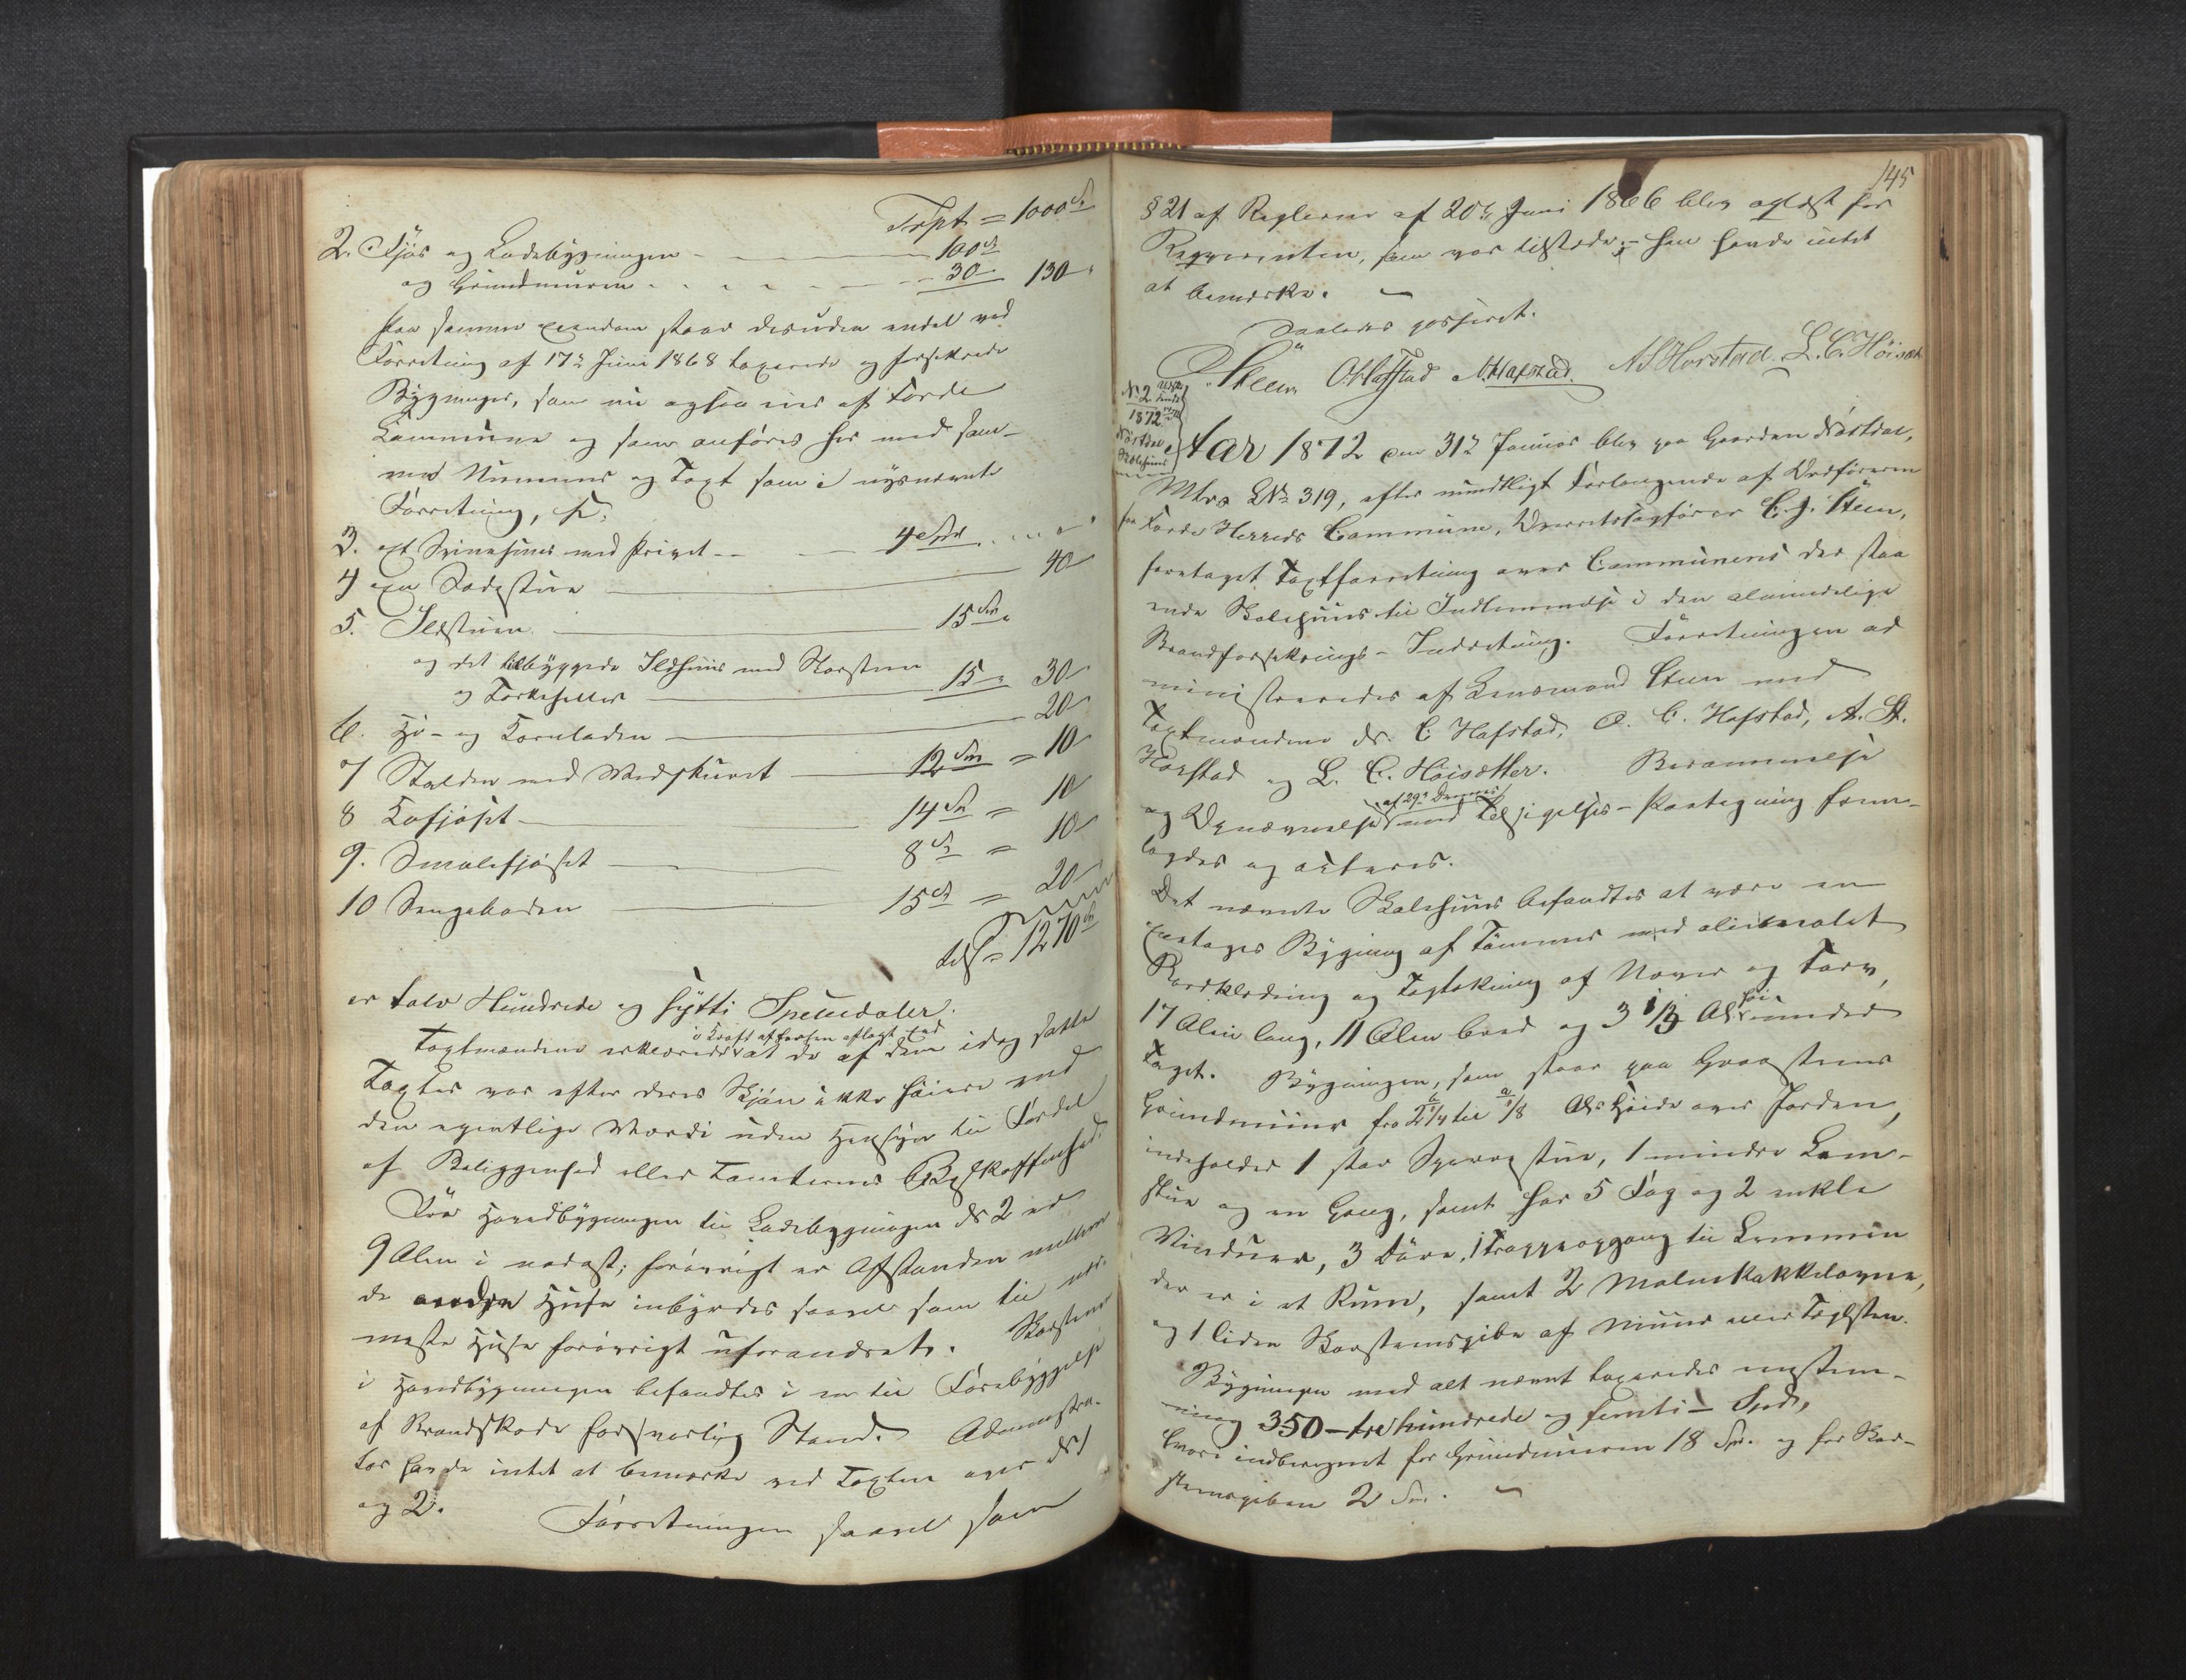 Trpt = 1000 Sp
2. Fjøs og Ladebygningen - 100 Sp
og Grundmuren - 30 - 130
Paa samme Eiendom staar desuden endel ved
Forretning af 17de Juni 1868 taxerede og forsikrede
Bygninger, som nu ogsaa eies af Førde
Commune og som anføres her med sam-
me Numere og Taxt som i nysnævnte
Forretning,
3. et Svinehuus med Privet - 4 Spd
4 en Sødestue 40
5. Ildstuen 15 Spd
og det tilbyggede Ildhuus med Skorsten
og Tørkeheller 15 30
6. Hø- og Kornladen 20
7 Stalden med Vedskuret 12 Spd = 10
8 Kofjøset 14 Sp = 10
9. Smalefjøset 8 Sp = 10
10 Sengeboden 15 Sp = 20
tils = 1270 Sp
er tolv Hundrede og sytti Speciedaler.
i Kraft af forhen aflagt Eed
Taxtmændene erklærede at de af dem idag satte
Taxter var efter deres Skjøn ikke høiere end
den egentlige Værdi uden Hensyn til Fordel
af Beliggenhed eller Tomternes Beskaffenhed.
Fra Hovedbygningen til Ladebygningen No 2 er
9 Alen i nordost; forøvrigt er Afstanden mellem
de andre Huse inbyrdes saavel som til nær-
meste Huse forøvrigt uforandret. Skorstenen
i Hovedbygningen befandtes i en til Forebyggelse
af Brandskade forsvarlig Stand. Administra-
tor havde intet at bemærke ved Taxten over No 1
og 2. Forretningen saavel som
145
§ 21 af Reglerne af 20de Juni 1866 blev oplæst for
Reqvirenten, som var tilstede; - han havde intet
at bemærke.
Saaledes passeret.
Steen O Hafstad N. Hafstad. A S Horstad. L. C. Høisæt
No 2
1872
Nøstdal
Skolehuus
Aar 1872 den 31te Januar blev paa Gaarden Nøstdal,
Mtr. LNo 319, efter mundtligt Forlangende af Ordføreren
for Førde Herreds Commune, Overretssagfører C. J. Steen,
foretaget Taxtforretning over Communens der staa
ende Skolehuus til Indlemmelse i den almindelige
Brandforsikrings-Indretning. Forretningen ad
ministreredes af Lensmand Steen med
Taxtmændene N. C Hafstad, O. C. Hafstad, A. S.
Horstad og L. C. Høisætter. Berammelse
af 29de Dennes
og Opnævnelse med Tilsigelses-Paategning frem-
lagdes og acteres.
Det nævnte Skolehuus befandtes at være en
Eenetages Bygning af Tømmer med oliemalet
Bordklædning og Tagtækning af Næver og Torv,
17 Alen lang, 11 Alen bred og 3 1/3 Al høi under
Taget. Bygningen, som staar paa Graasteens
Grundmuur fra 1/4 til 5/8 Als Høide over Jorden,
indeholder 1 stor Sperrestue, 1 mindre Lem-
stue og en Gang, samt har 5 Fag og 2 enkle
Vinduer, 3 Døre, 1 Trappeopgang til Lemmen
der er i et Rum, samt 2 Malmkakkelovne,
og 1 liden Skorstenspibe af Muur eller Teglsten.
Bygningen med alt nævnt taxeredes eenstem-
mig 350 - tre hundrede og femti - Spdr,
hvori indberegnet for Grundmuren 18 Spd. og for Skor-
stenspiben 2 Spd.